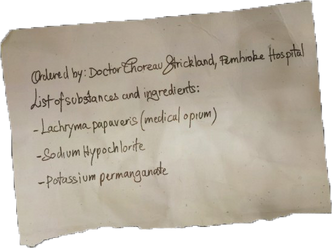 Ordered by: Doctor Thoreau Strickland, Pembroke Hospital
List of substances and ingredients:
-Lachryma papaveris (medical opium)
-Sodium Hypochlorite
-Potassium permanganate